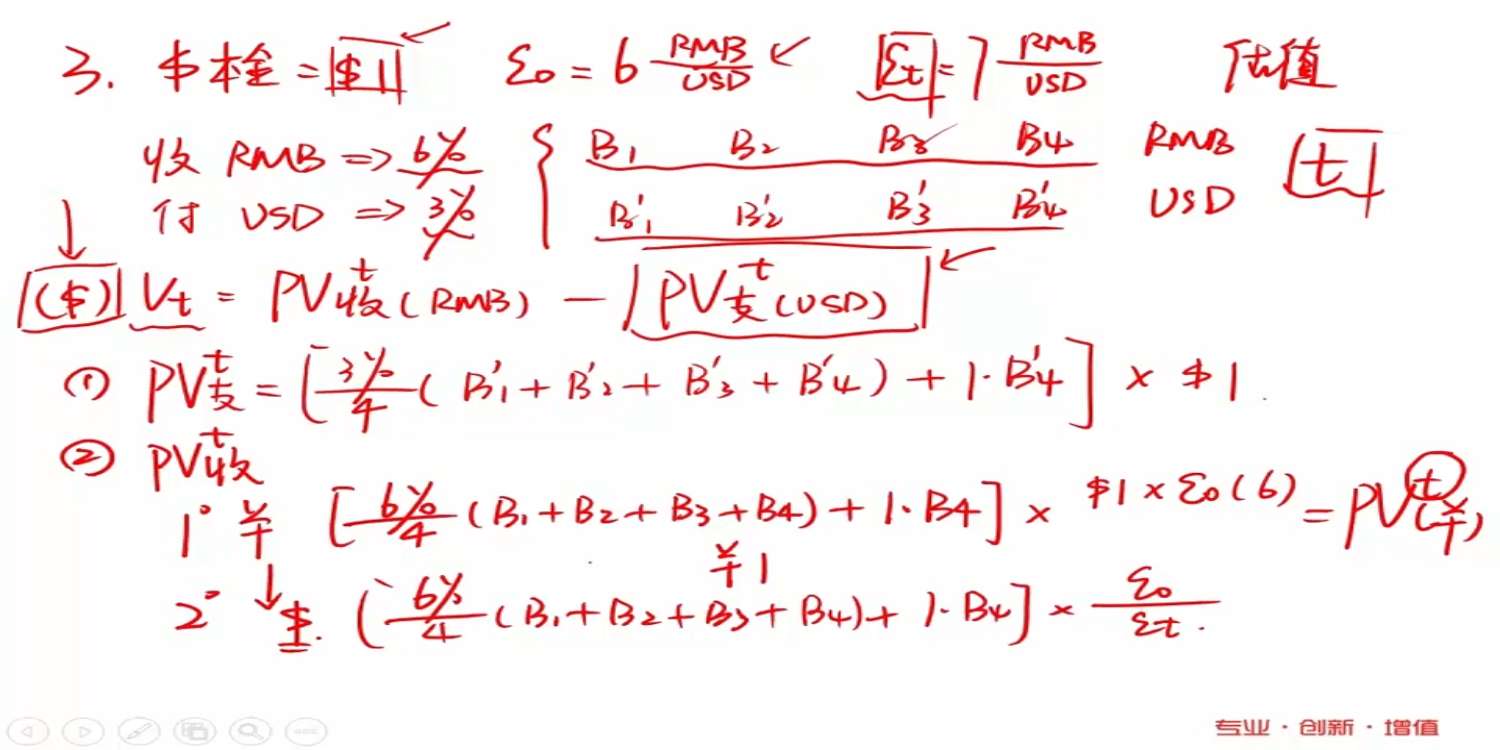 3. $本金 = $1 ε0 = 6 RMB/USD εt = 7 RMB/USD 估值
收 RMB => 6% { B1 B2 B3 B4 RMB t
付 USD => 3% B'1 B'2 B'3 B'4 USD
($) Vt = PV收^t (RMB) − PV支^t (USD)
① PV支^t = [3%/4 (B'1 + B'2 + B'3 + B'4) + 1·B'4] × $1.
② PV收^t
1° ¥ [6%/4 (B1 + B2 + B3 + B4) + 1·B4] × $1 × ε0(6) = PV^t(¥)
¥1
2° ↓ $. [6%/4 (B1 + B2 + B3 + B4) + 1·B4] × ε0/εt.
专业·创新·增值